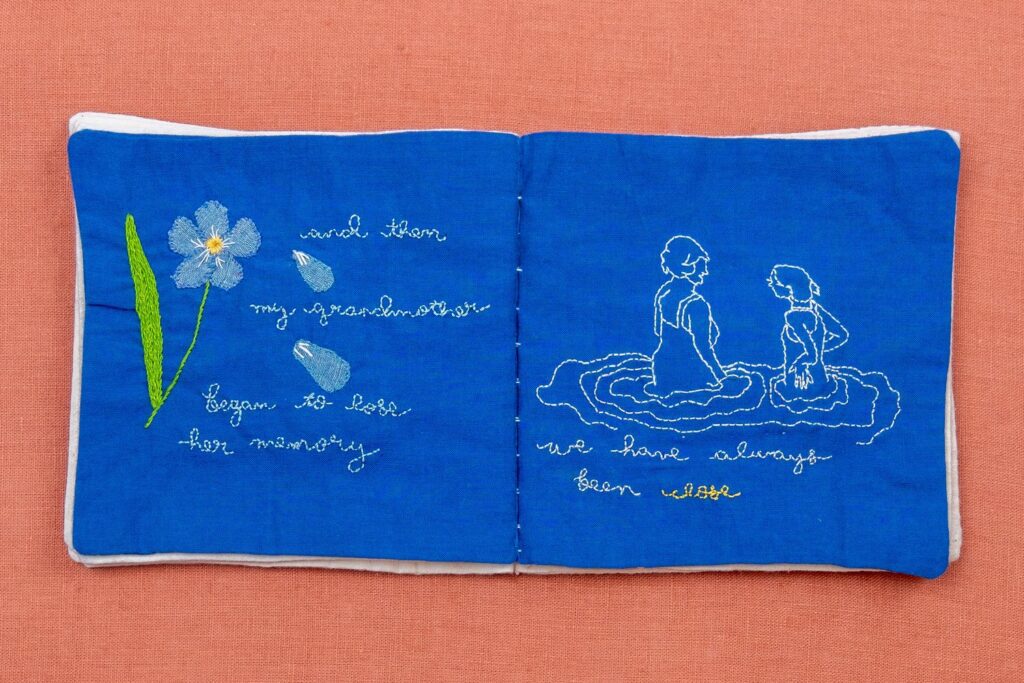 and then
my grandmother
began to lose
her memory
we have always
been close